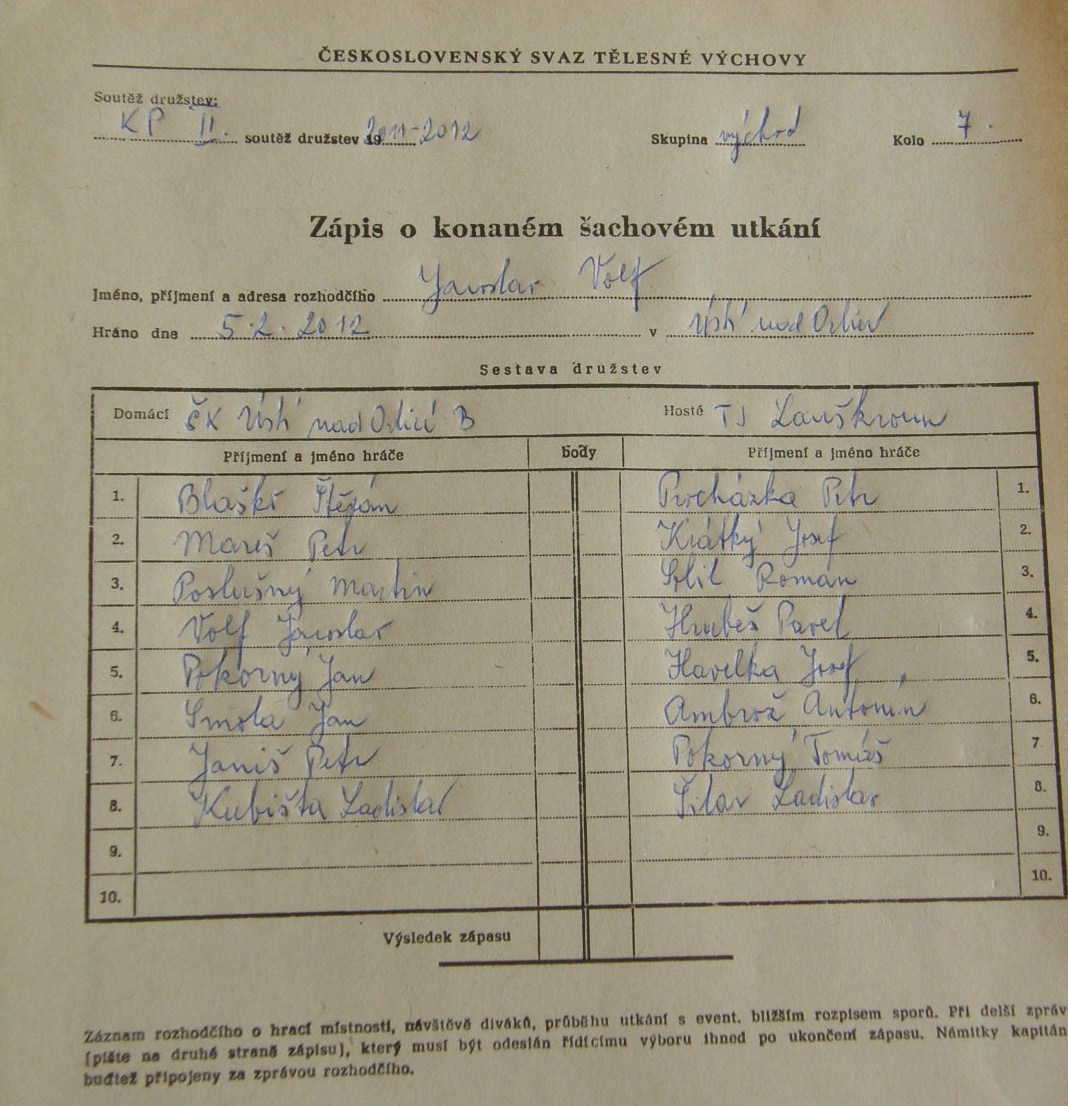 ČESKOSLOVENSKÝ SVAZ TĚLESNÉ VÝCHOVY
Soutěž družstev:
KP II. soutěž družstev 19 2011-2012 Skupina východ Kolo 7.
Zápis o konaném šachovém utkání
Jméno, příjmení a adresa rozhodčího Jaroslav Volf
Hráno dne 5.2.2012 v Ústí nad Orlicí
Sestava družstev
Domácí ŠK Ústí nad Orlicí B Hosté TJ Lanškroun
Příjmení a jméno hráče body Příjmení a jméno hráče
1. Blaškě Štěpán Procházka Petr 1.
2. Mareš Petr Krátký Josef 2.
3. Poslušný Martin Roman 3.
4. Volf Jaroslav Hrubeš Pavel 4.
5. Pokorný Jan Havelka Josef 5.
6. Smola Jan Ambrož Antonín 6.
7. Janiš Petr Pokorný Tomáš 7
8. Kubišta Ladislav Šilar Ladislav 8.
9. 9.
10. 10.
Výsledek zápasu
Záznam rozhodčího o hrací místnosti, návštěvě diváků, průběhu utkání s event. bližším rozpisem sporů. Při delší zpráv
(pište na druhé straně zápisu), který musí být odeslán řídícímu výboru ihned po ukončení zápasu. Námitky kapitán
buďtež připojeny za zprávou rozhodčího.